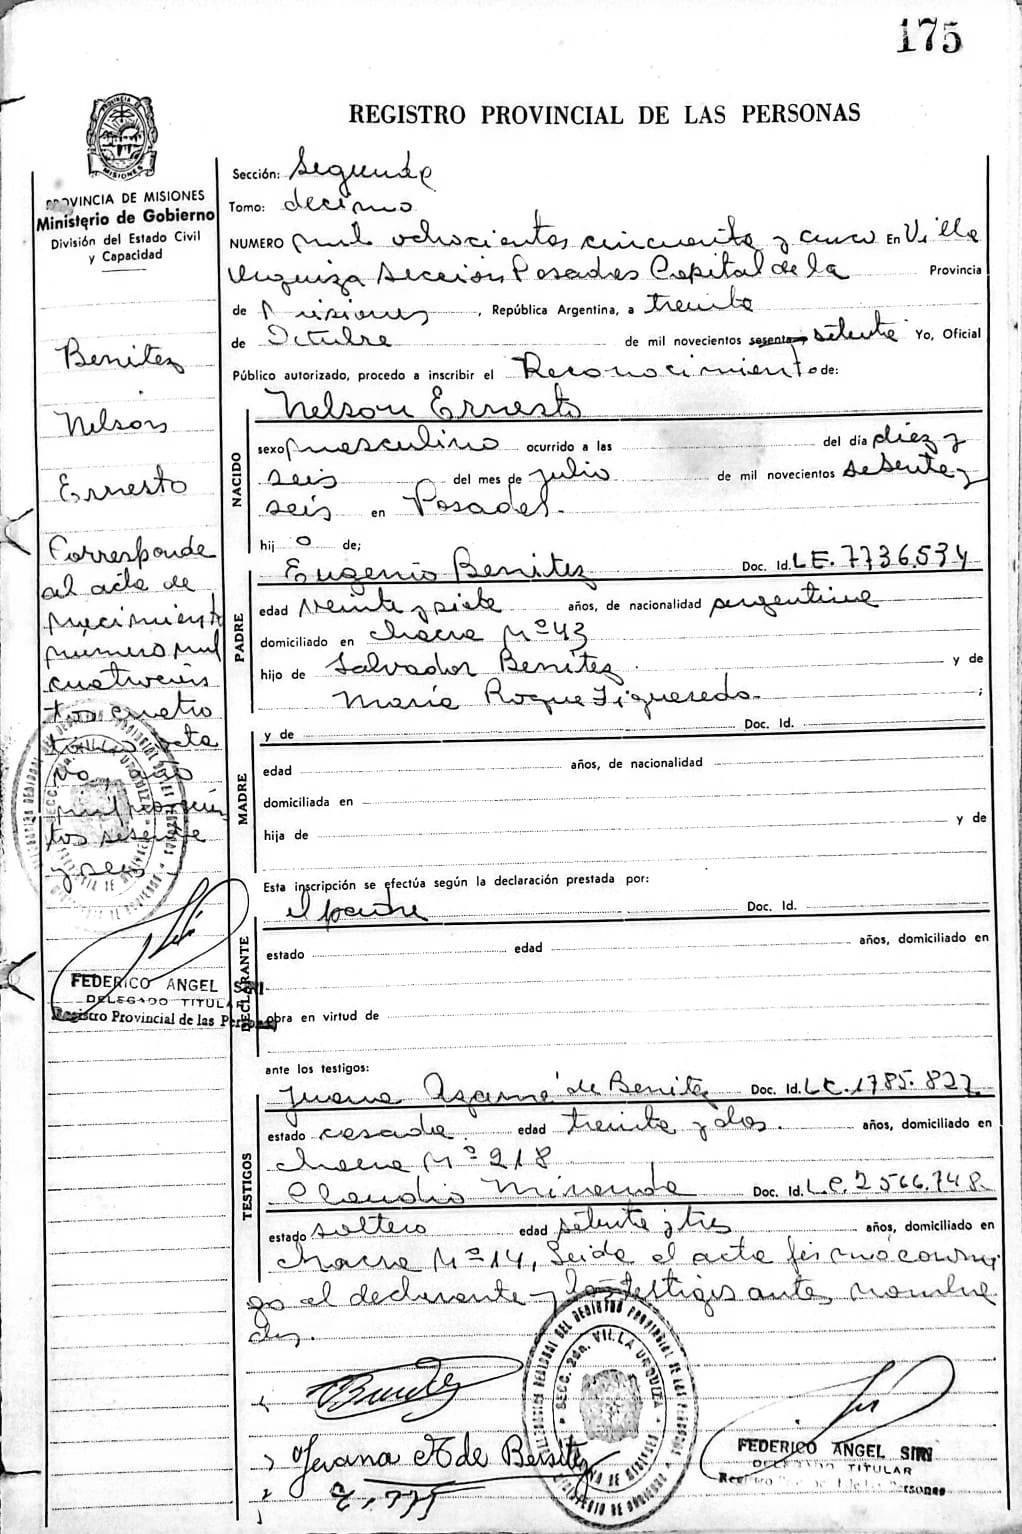 175
REGISTRO PROVINCIAL DE LAS PERSONAS
PROVINCIA DE MISIONES
Ministerio de Gobierno
División del Estado Civil
y Capacidad
Benitez
Nelson
Ernesto
Corresponde
al acta de
nacimiento
número mil
cuatrocien
tos cuatro
tomo octa
vo, año
mil novecien
tos sesenta
y seis
FEDERICO ANGEL SIRI
DELEGADO TITULAR
Registro Provincial de las Personas
Sección: Segunda
Tomo: decimo
NUMERO mil ochocientos cincuenta y cinco En Villa
Urquiza Sección Posadas Capital de la Provincia
de Misiones, República Argentina, a treinta
de Octubre de mil novecientos sesenta y setenta Yo, Oficial
Público autorizado, procedo a inscribir el Reconocimiento de:
NACIDO
Nelson Ernesto
sexo masculino ocurrido a las del día diez y
seis del mes de julio de mil novecientos sesenta y
seis en Posadas.
hij o de;
PADRE
Eugenio Benitez Doc. Id. L.E. 7736.534
edad veinte y siete años, de nacionalidad argentina
domiciliado en chacra Nº 43
hijo de Salvador Benitez y de
María Roque Figueredo. ;
MADRE
y de Doc. Id.
edad años, de nacionalidad
domiciliada en
hija de y de
Esta inscripción se efectúa según la declaración prestada por:
DECLARANTE
el padre Doc. Id.
estado edad años, domiciliado en
obra en virtud de
ante los testigos:
TESTIGOS
Juana de Benitez Doc. Id. L.C. 1785.827
estado casada. edad treinta y dos. años, domiciliado en
chacra Nº 218
Claudio Miranda Doc. Id. L.C. 2566.748
estado soltero edad setenta y tres años, domiciliado en
chacra Nº 14, Leida el acta firmó conmi
go el declarante y los testigos antes nombra
dos.
Benitez
Juana A de Benitez
DELEGACION REGIONAL DEL REGISTRO PROVINCIAL DE LAS PERSONAS
SECC. 2da. VILLA URQUIZA
PROVINCIA DE MISIONES
MINISTERIO DE GOBIERNO
FEDERICO ANGEL SIRI
DELEGADO TITULAR
Registro Provincial de las Personas